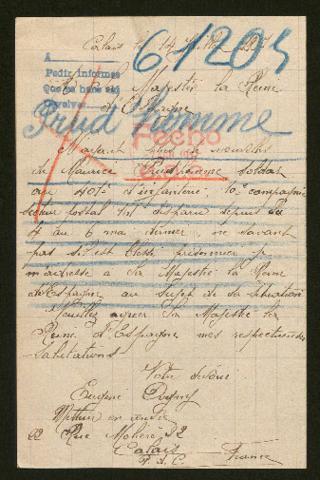 Calais le 14
61205
A
Pedir informes
Majesté la Reine
d'Espagne
Prud'homme
Fecho
N'ayant plus de nouvelles
de Maurice Prud'homme soldat
au d'infanterie 10e compagnie
secteur postal disparu depuis le
4 au 6 mai dernier, ne savant
pas s'il est blessé prisonnier je
m'adresse à Sa Majesté la Reine
d'Espagne au sujet de sa situation
Veuillez agréer Sa Majesté la
Reine d'Espagne mes respectueuses
salutations
Votre
Eugène
Metteur en
22 Rue Molière 22
Calais
P. d. C. France